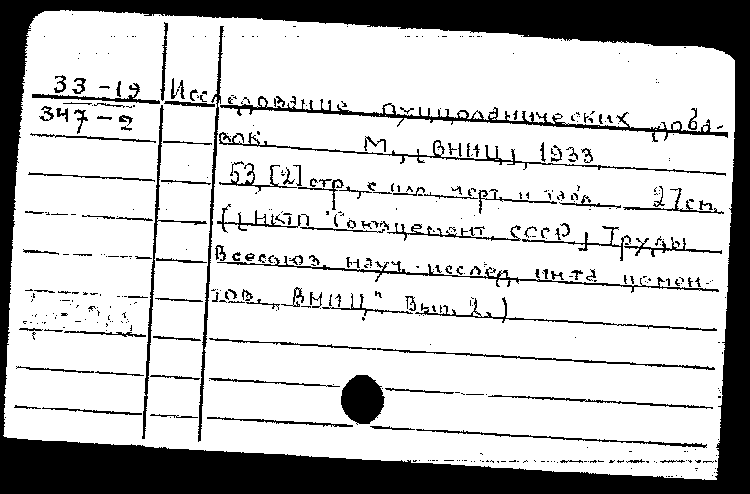 33-19 Исследование пуццоланических доба-
347-2 вок. М., [ВНИЦ], 1933.
53, [2] стр., с илл., черт. и табл. 27 см.
([НКТП "Союзцемент. СССР] Труды
Всесоюз. науч.-исслед. ин-та цемен-
тов. "ВНИЦ" Вып. 2.)